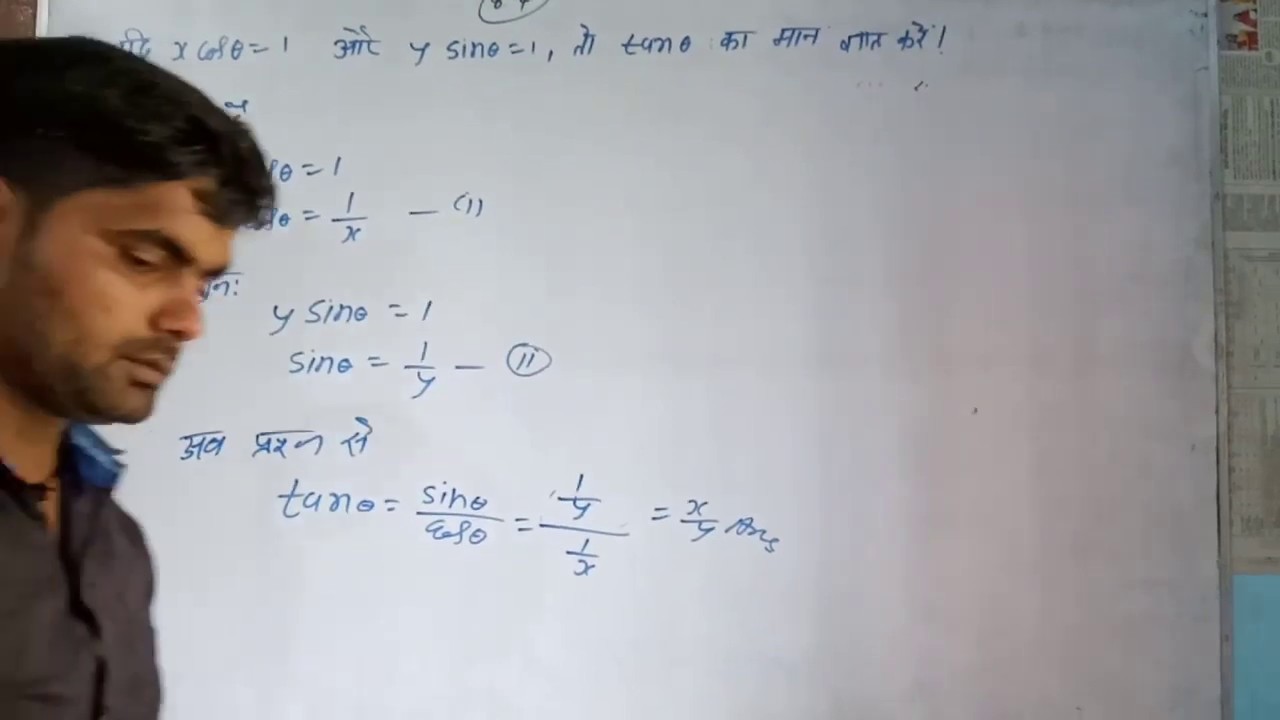 x cosθ = 1 और y sinθ = 1, तो tanθ का मान ज्ञात करें!
θ = 1
θ = 1/x — (1)
y sinθ = 1
sinθ = 1/y — (11)
अब प्रश्न से
tanθ = sinθ/cosθ = (1/y)/(1/x) = x/y Ans